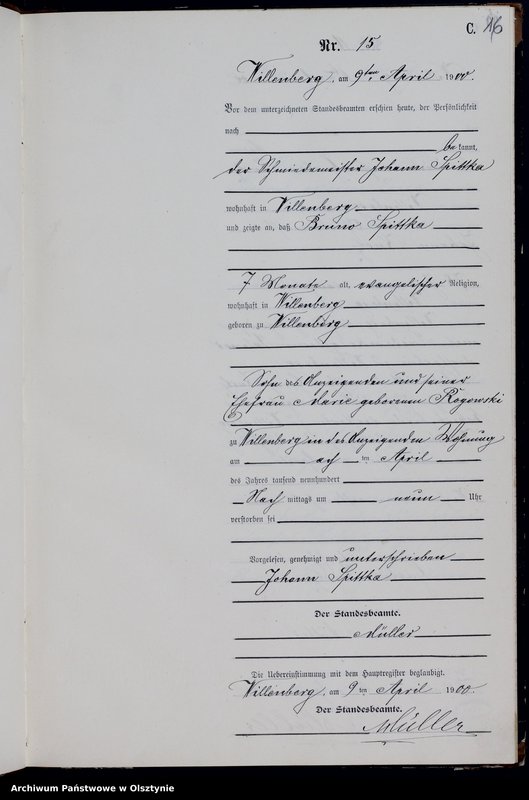 C. 16
Nr. 15
Willenberg, am 9ten April 1900.
Vor dem unterzeichneten Standesbeamten erschien heute, der Persönlichkeit
nach
bekannt,
der Schmiedemeister Johann Spittka
wohnhaft in Willenberg
und zeigte an, daß Bruno Spittka
7 Monate alt, evangelischer Religion,
wohnhaft in Willenberg
geboren zu Willenberg
Sohn des Anzeigenden und seiner
Ehefrau Marie geborenen Rogowski
zu Willenberg in des Anzeigenden Wohnung
am ach ten April
des Jahres tausend neunhundert
Nach mittags um neun Uhr
verstorben sei
Vorgelesen, genehmigt und unterschrieben
Johann Spittka
Der Standesbeamte.
Müller
Die Uebereinstimmung mit dem Hauptregister beglaubigt.
Willenberg, am 9 ten April 1900.
Der Standesbeamte.
Müller
Archiwum Państwowe w Olsztynie